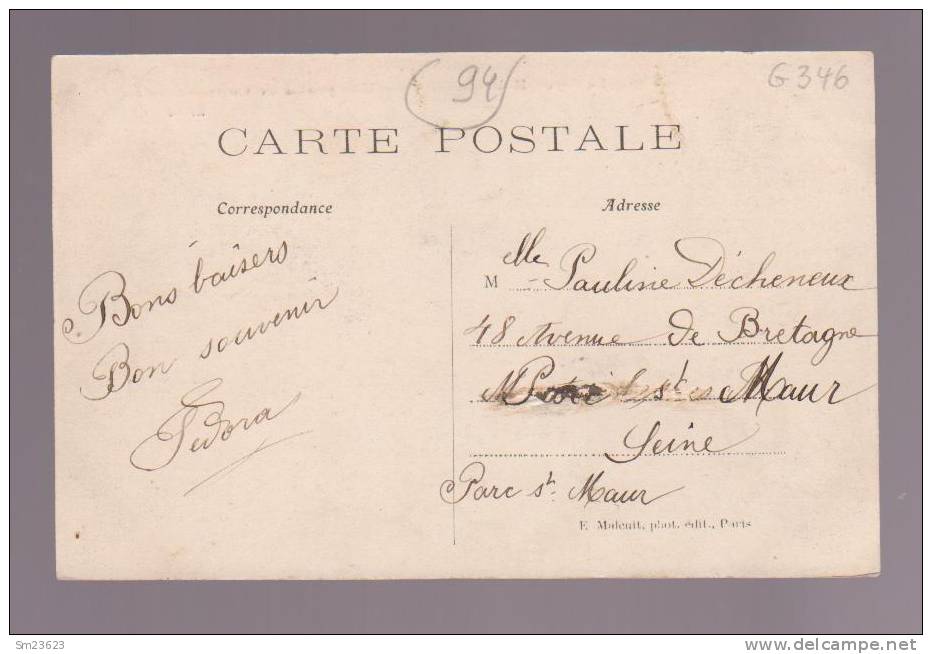 (94)
G 346
CARTE POSTALE
Correspondance
Adresse
Bons baîsers
Bon souvenir
Fedora
M elle Pauline Décheneux
48 Avenue de Bretagne
Parc St Maur
Seine
Parc St Maur
E. Malcuit, phot. édit., Paris
Sm23623
www.delcampe.net